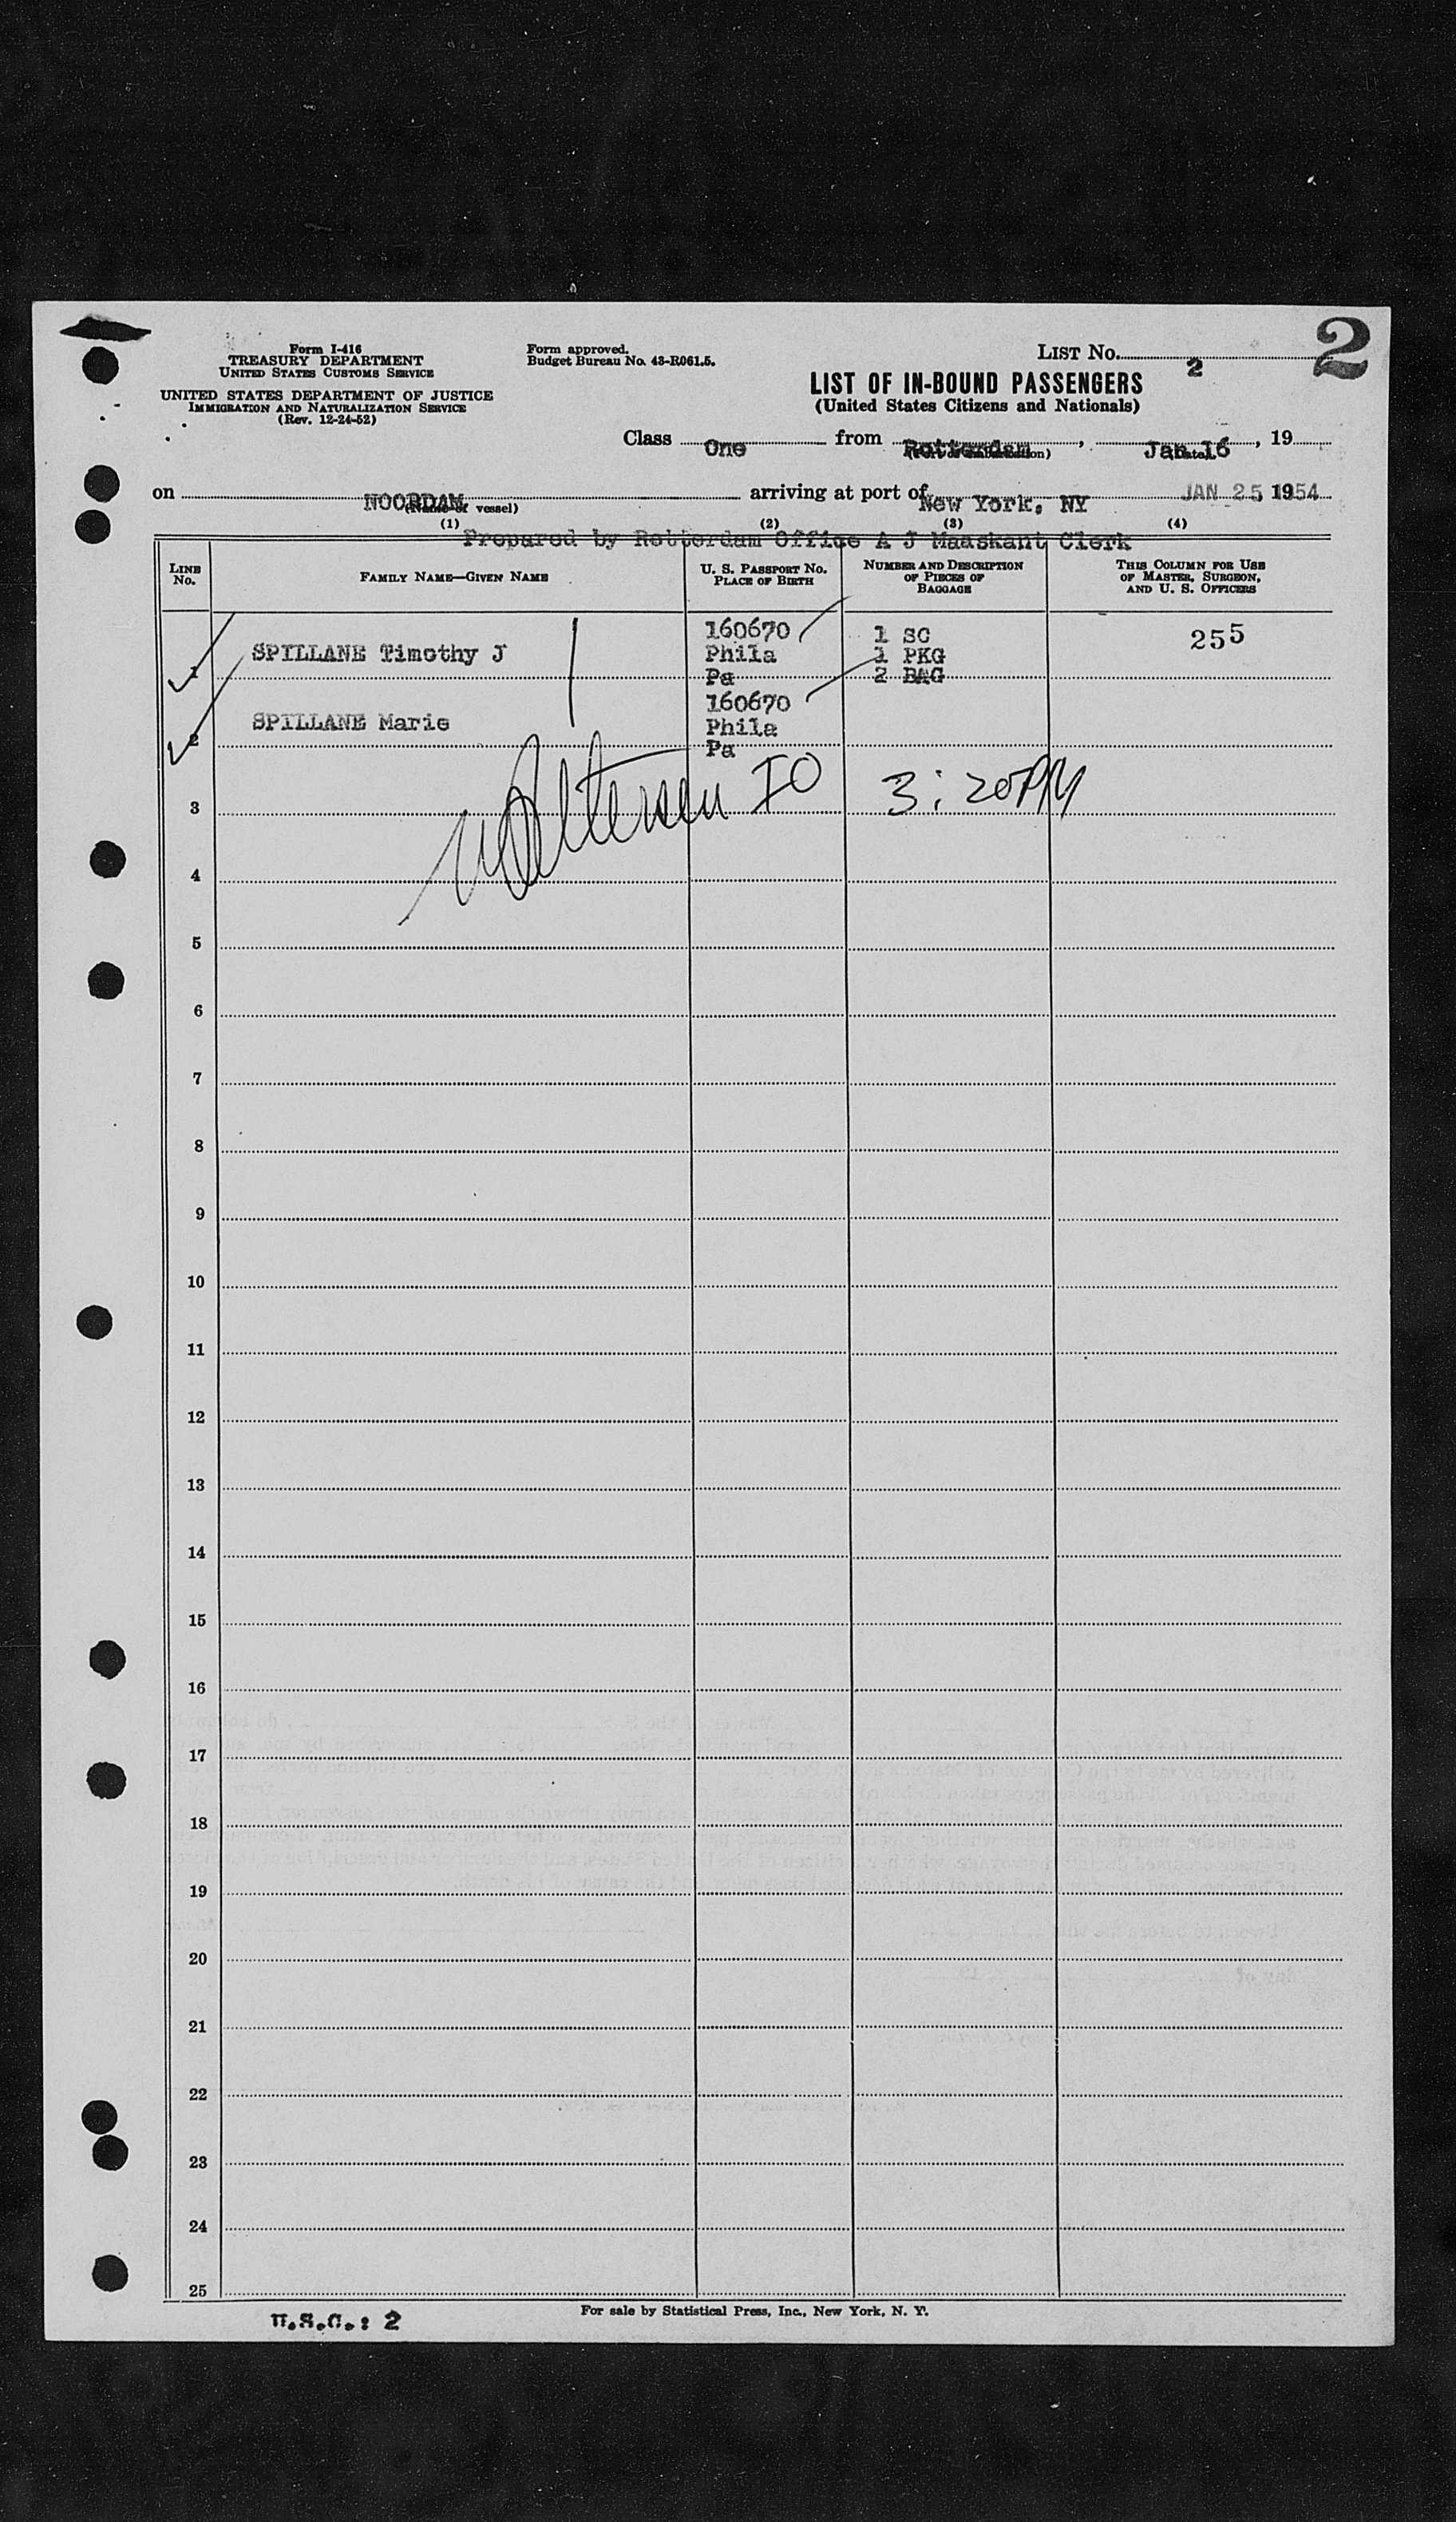 2
Form I-416
TREASURY DEPARTMENT
UNITED STATES CUSTOMS SERVICE
UNITED STATES DEPARTMENT OF JUSTICE
IMMIGRATION AND NATURALIZATION SERVICE
(Rev. 12-24-52)
Form approved.
Budget Bureau No. 43-R061.5.
LIST No. 2
LIST OF IN-BOUND PASSENGERS
(United States Citizens and Nationals)
Class One from Rotterdam, Jan 16, 19
(Port of embarkation) (Date)
on NOORDAM arriving at port of New York, NY JAN 25, 1954
(Name of vessel)
(1) (2) (3) (4)
Prepared by Rotterdam Office A J Maaskant Clerk
LINE No.
FAMILY NAME—GIVEN NAME
U. S. PASSPORT No.
PLACE OF BIRTH
NUMBER AND DESCRIPTION
OF PIECES OF
BAGGAGE
THIS COLUMN FOR USE
OF MASTER, SURGEON,
AND U. S. OFFICERS
1 SPILLANE Timothy J
160670
Phila
Pa
1 SC
1 PKG
2 BAG
255
2 SPILLANE Marie
160670
Phila
Pa
IO 3:20PM
3
4
5
6
7
8
9
10
11
12
13
14
15
16
17
18
19
20
21
22
23
24
25
U.S.C.: 2
For sale by Statistical Press, Inc., New York, N. Y.